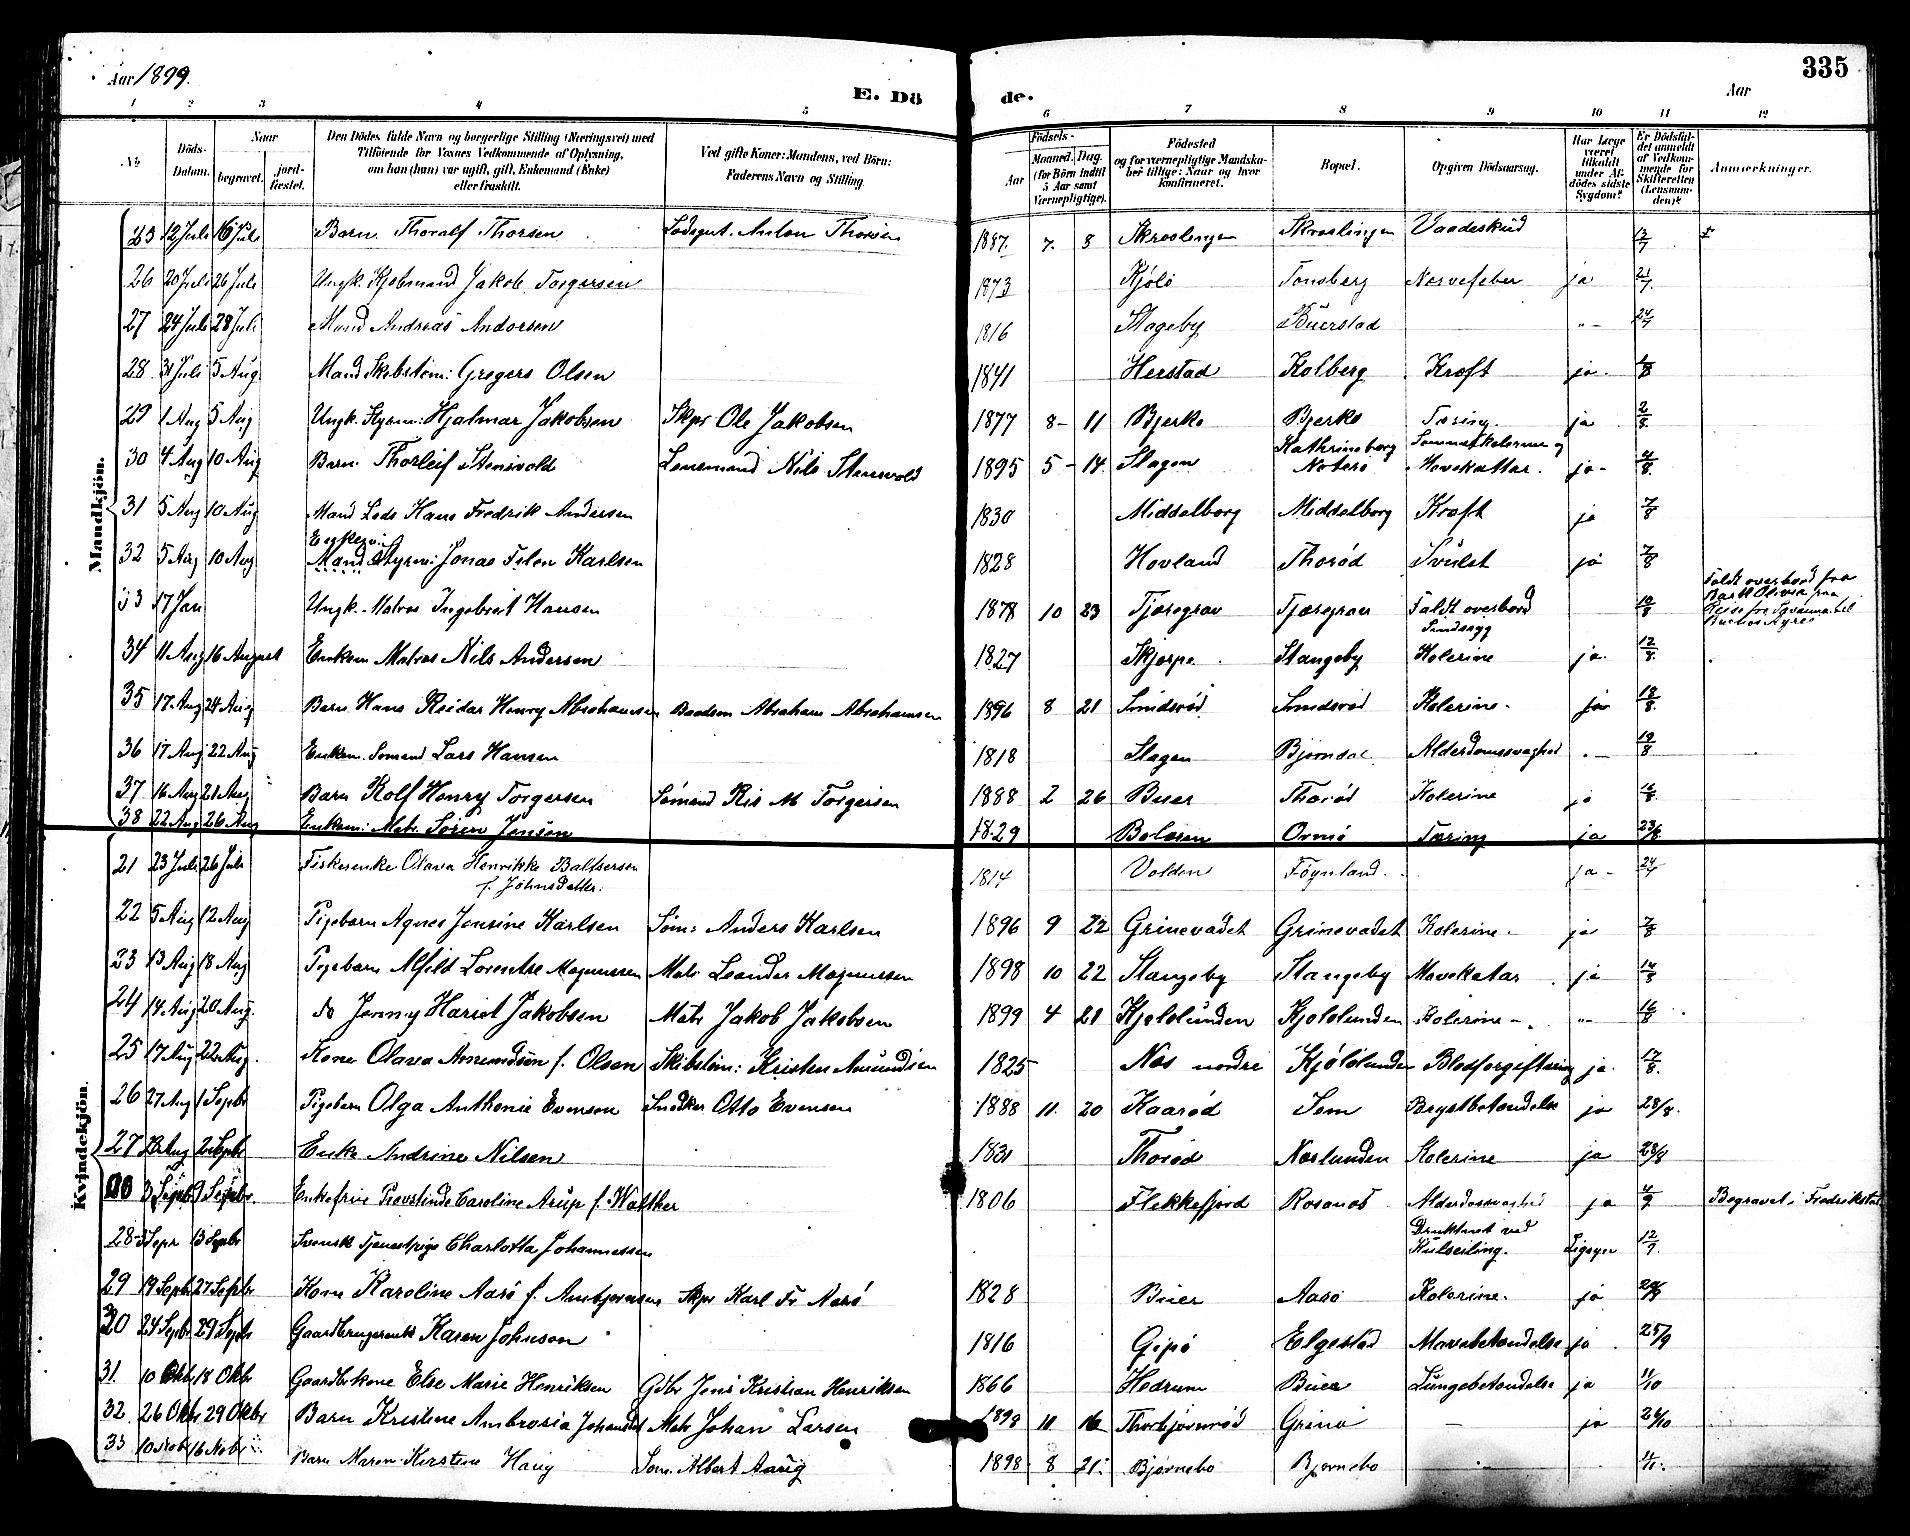 335
Aar 1899.
E. Dö de.
Aar
1 2 3 4 5 6 7 8 9 10 11 12
No
Döds-Datum.
Naar
begravet.
jord-fæstet.
Den Dödes fulde Navn og borgerlige Stilling (Næringsvei) med
Tilföiende for Voxnes Vedkommende af Oplysning,
om han (hun) var ugift, gift, Enkemand (Enke)
eller fraskilt.
Ved gifte Koner: Mandens, ved Börn:
Faderens Navn og Stilling.
Födsels-
Aar
Maaned.
Dag.
(for Börn indtil
5 Aar samt
Værnepligtige).
Födested
og for værnepligtige Mandska-
ber tillige: Naar og hvor
konfirmeret.
Bopæl.
Opgiven Dödsaarsag.
Har Læge
været
tilkaldt
under Af-
dödes sidste
Sygdom?
Er Dödsfal-
det anmeldt
af Vedkom-
mende for
Skifteretten
(Lensman-
den)?
Anmærkninger.
Mandkjön.
23 12 Juli 16 Juli Barn Thoralf Thorsen Lodsgut. Anton Thorsen 1887. 7. 8 Vaadeskud 13/7
26 20 Juli 26 Juli Ungk. Kjöbmand Jakob Torgersen 1873 Kjölö Tonsberg Nervefeber ja 21/7
27 24 Juli 28 Juli Mand Andreas Andersen 1816 Slageby Buerstad "- 24/7
28 31 Juli 5 Aug Mand Skibstöm: Gregers Olsen 1841 Herstad Kolberg Kræft ja 1/8
29 1 Aug 5 Aug Ungk. Styrm: Hjalmar Jakobsen Skpr Ole Jakobsen 1877 8- 11 Bjerke Bjerke Tæring ja 2/8
30 4 Aug 10 Aug Barn Thorleif Stensvold Lensmand Nils Stensvold 1895 5- 14 Slagen Kathrineborg Nøterø Mavekattar. ja- 4/8
31 5 Aug 10 Aug Mand Lods Hans Fredrik Andersen 1830 Middelborg Middelborg Kræft ja 7/8
32 5 Aug 10 Aug Mand Styrm: Jonas Karlsen 1828 Hovland Thorød Svulst ja 7/8
33 17 Jan Ungk. Matros Ingebret Hansen 1878 10 23 Tjæregrav Tjæregrav Faldt overbord 10/8 Faldt overbord fra Bark Olivia paa Reise fra til Buenos Ayres
34 11 Aug 16 August Enkem Matros Nils Andersen 1827 Skjerpe Stangeby Sindssyg Kolerine ja. 12/8
35 17 Aug 24 Aug Barn Hans Reidar Henry Abrahamsen Baadsm Abraham Abrahamsen 1896 8 21 Smidsrød Smidsrød Kolerine. ja 18/8
36 17 Aug 22 Aug Enkem. Sömand Lars Hansen 1818 Slagen Bjørndal Alderdomssvaghed - 19/8
37 16 Aug 21 Aug Barn Rolf Henry Torgersen Sömand Ris M Torgersen 1888 2 26 Buer Thorød Kolerine ja 16/8
38 22 Aug 26 Aug Enkem: Matr Sören Jensen 1829 Bolærne Ormö Tæring ja 23/8
Kvjndekjön.
21 23 Juli 26 Juli Fiskerenke Olava Henrikke Baltsersen f. Johnsdatter. 1814 Volden Föynland ja - 24/7
22 5 Aug 12 Aug Pigebarn Agnes Jensine Karlsen Söm: Anders Karlsen 1896 9 22 Grinevadet Grinevadet Kolerine - ja 7/8
23 13 Aug 18 Aug Pigebarn Alfild Lorentse Magnussen Matr Leander Magnussen 1898 10 22 Stangeby Stangeby Mavekatar ja 14/8
24 14 Aug 20 Aug. do Jenny Hariet Jakobsen Matr Jakob Jakobsen 1899 4 21 Kjølølunden Kjølølunden Kolerine - "- 16/8
25 17 Aug 22 Aug. Kone Olava Amundsen f. Olsen Skibstöm: Kristen Amundsen 1825 Nes nordre Kjölölunden Blodforgiftning ja 17/8.
26 27 Aug 1 Septbr Pigebarn Olga Anthonie Evensen Snedker Otto Evensen 1888 11. 20 Kaarød Sem Brystbetændelse ja 28/8.
27 28 Aug 2 Septbr Enke Andrine Nilsen 1831 Thorød Nørlunden Kolerine ja 28/8
3 Septbr 9 Septbr. Enkefrue Provstinde Caroline Arup f. Walther 1806 Flekkefjord Rosanes Alderdomssvaghed ja 4/9 Begravet i Fredrikstad
28 3 Septr 13 Septbr Svensk Tjenestpige Charlotta Johannessen Druktnet ved Kulseiling. Ligsyn 12/9.
29 19 Septbr 27 Septbr Kone Karoline Aasö f. Anebjornsen Skpr Karl Fr Aasö 1828 Buer Aasø Kolerine. ja 20/9
30 24 Septbr 29 Septb Gaardbrugerenke Karen Johnson 1816 Gipø Elgestad Mavebetændelse ja 25/9
31. 10 Oktbr 18 Oktbr Gaardbrkone Else Marie Henriksen Gdbr Jens Kristian Henriksen 1866 Hedrum Buer Lungebetændelse ja 11/10
32. 26 Oktbr 29 Oktbr Barn Kristine Ambrosia Johansd. Matr Johan Larsen 1898 11 16 Thorbjørnrød Grinø - ja 26/10
33 10 Novbr 16 Novbr Barn Maren Kirstine Haug Söm. Albert Haug 1898 8 21. Bjørnebo Bjørnebo